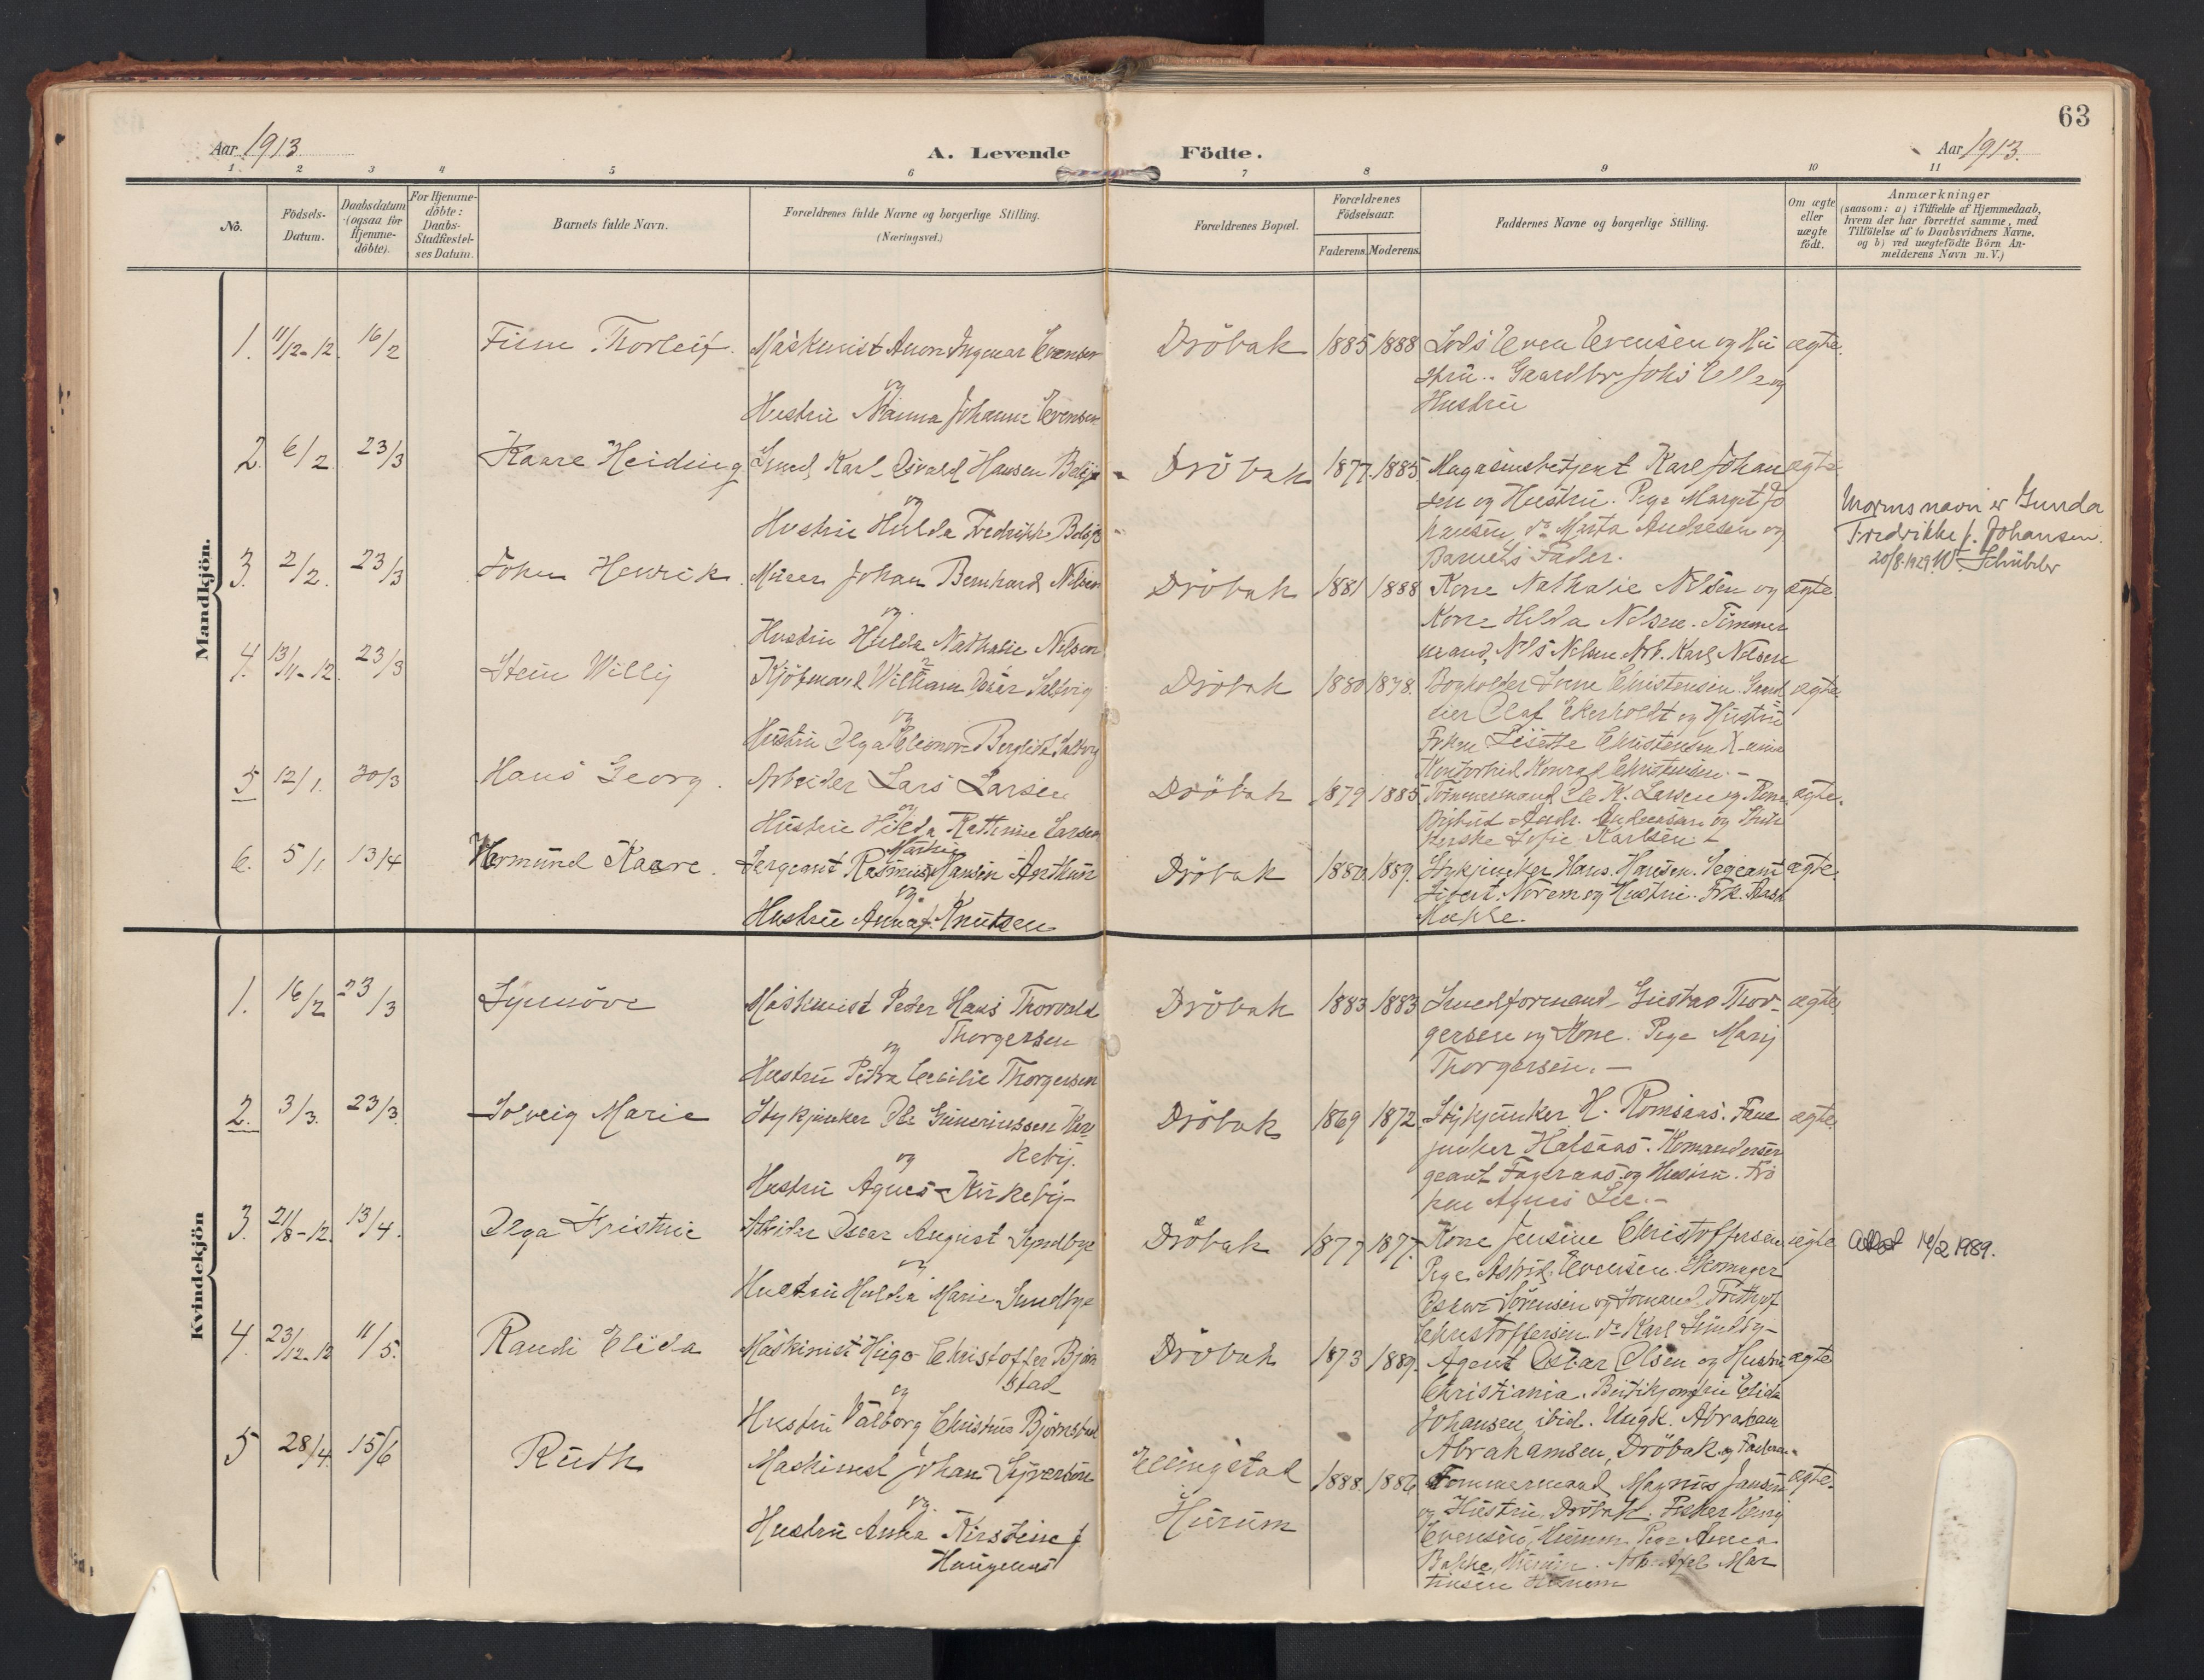 63
Aar 1913
A. Levende Födte.
Aar 1913.
1 2 3 4 5 6 7 8 9 10 11
No.
Födsels-
Datum.
Daabsdatum
(ogsaa for
Hjemme-
döbte).
For Hjemme-
döbte:
Daabs-
Stadfæstel-
ses Datum.
Barnets fulde Navn.
Forældrenes fulde Navne og borgerlige Stilling.
(Næringsvei.)
Forældrenes Bopæl.
Forældrenes
Födselsaar.
Faderens. Moderens.
Faddernes Navne og borgerlige Stilling.
Om ægte
eller
uægte
födt.
Anmærkninger
(saasom: a) i Tilfælde af Hjemmedaab,
hvem der har forrettet samme, med
Tilföielse af to Daabsvidners Navne,
og b) ved uægtefödte Börn An-
melderens Navn m. V.)
Mandkjön.
1. 11/2-12. 16/2
Finn Thorleif.
Maskinist Anon Ingvar Evensen
og
Hustru Nanna Johanne Evensen
Dröbak 1885 1888
Lods Even Evensen og Hu
stru. Gaardbr Johs Elle og
Hustru
ægte.
2. 6/2. 23/3
Kaare Heiding
Smed Karl Osvald Hansen
og
Hustru Hulda Fredrikke
Dröbak 1877. 1885.
Magasinsbetjent Karl Johan
sen og Hustru. Pige Margit Jo
hansen, do Marta Andresen og
Barnets Fader.
ægte
Morens navn er Gunda
Fredrikke f. Johansen.
20/8.1929. W. Schübeler
3. 2/2. 23/3
John Henrik.
Murer Johan Bernhard Nilsen
og
Hustru Hulda Nathalie Nilsen
Dröbak 1881 1888
Kone Nathalie Nilsen og
Kone Hilda Nilsen. Tömmer
mand Nils Nilsen Arb. Karl Nilsen
ægte
4. 13/11-12. 23/3
Stein Willy
Kjöbmand William Oscar
og
Hustru Olga Elionore
Dröbak 1880 1878.
Bogholder Svein Christensen
Olaf Ekerholdt og Hustru
Frken Lisette Christensen X-ania
Kontorist Konrad Christensen. -
ægte.
5 12/1. 30/3
Hans Georg.
Arbeider Lars Larsen
og
Hustru Hilda Kathrine Larsen
Dröbak 1879 1885
Tömmermand Ole K. Larsen og Kone
Andr. Andreasen og
Sofie Karlsen -
ægte.
6. 5/1. 13/4
Hermund Kaare.
Sergeant Rasmus Hansen
og
Hustru Anna f. Knutsen
Dröbak 1880. 1889.
Stykjunker Hans Hansen. Segeant
Sivert Norem og Hustru. Frk.
ægte.
Kvindekjön
1. 16/2 23/3
Synnöve
Maskinist Peder Hans Thorvald
Thorgersen
og
Hustru Petra Cecilie Thorgersen
Dröbak 1883 1883
Smedformand Gustav Thor-
gersen og Kone. Pige Marij
Thorgersen. -
ægte.
2. 3/3. 23/3.
Solveig Marie
Stykjunker Ole Guneriussen Kir
keby.
og
Hustru Agnes Kirkeby-
Dröbak 1869 1872.
Stykjunker H. Romsaas. Fane
junker Halsaas. Komandersær
geant Fageraas og Hustru. Frö
ken Agnes Lie. -
ægte.
3. 21/8-12. 13/4.
Olga Kristine
Arbeider Oscar August Syndbye
og
Hustru Hulda Marie Sundbye
Dröbak 1877 1877.
Kone Jensine Christoffersen
Pige Astrid Evensen. Skomager
Oskar Sörensen og Sömand Frithjof
Christoffersen do Karl Sundby-
ægte
Attest 14/2 1989.
4. 23/12-12 11/5.
Randi Elida
Maskinist Hugo Christoffer Björn
stad
og
Hustru Valborg Christine Björnstad
Dröbak 1873 1889.
Agent Oskar Olsen og Hustru
Christiania. Butikjomfru Elida
Johansen, ibid. Ungk. Abraham
Abrahamsen, Dröbak og Faderen.
ægte
5 28/4. 15/6
Ruth
Maskinist Johan Syversen
og
Hustru Anna Kirstine f
Haugenes
Ellingstad
i
Hurum
1888. 1886
Tömmermand Magnus Jansen
og Hustru, Dröbak. Fisker Henry
Evensen, Hurum. Pige Anna
Bakke, Hurum. Arb. Axel Mar
tinsen Hurum
ægte.